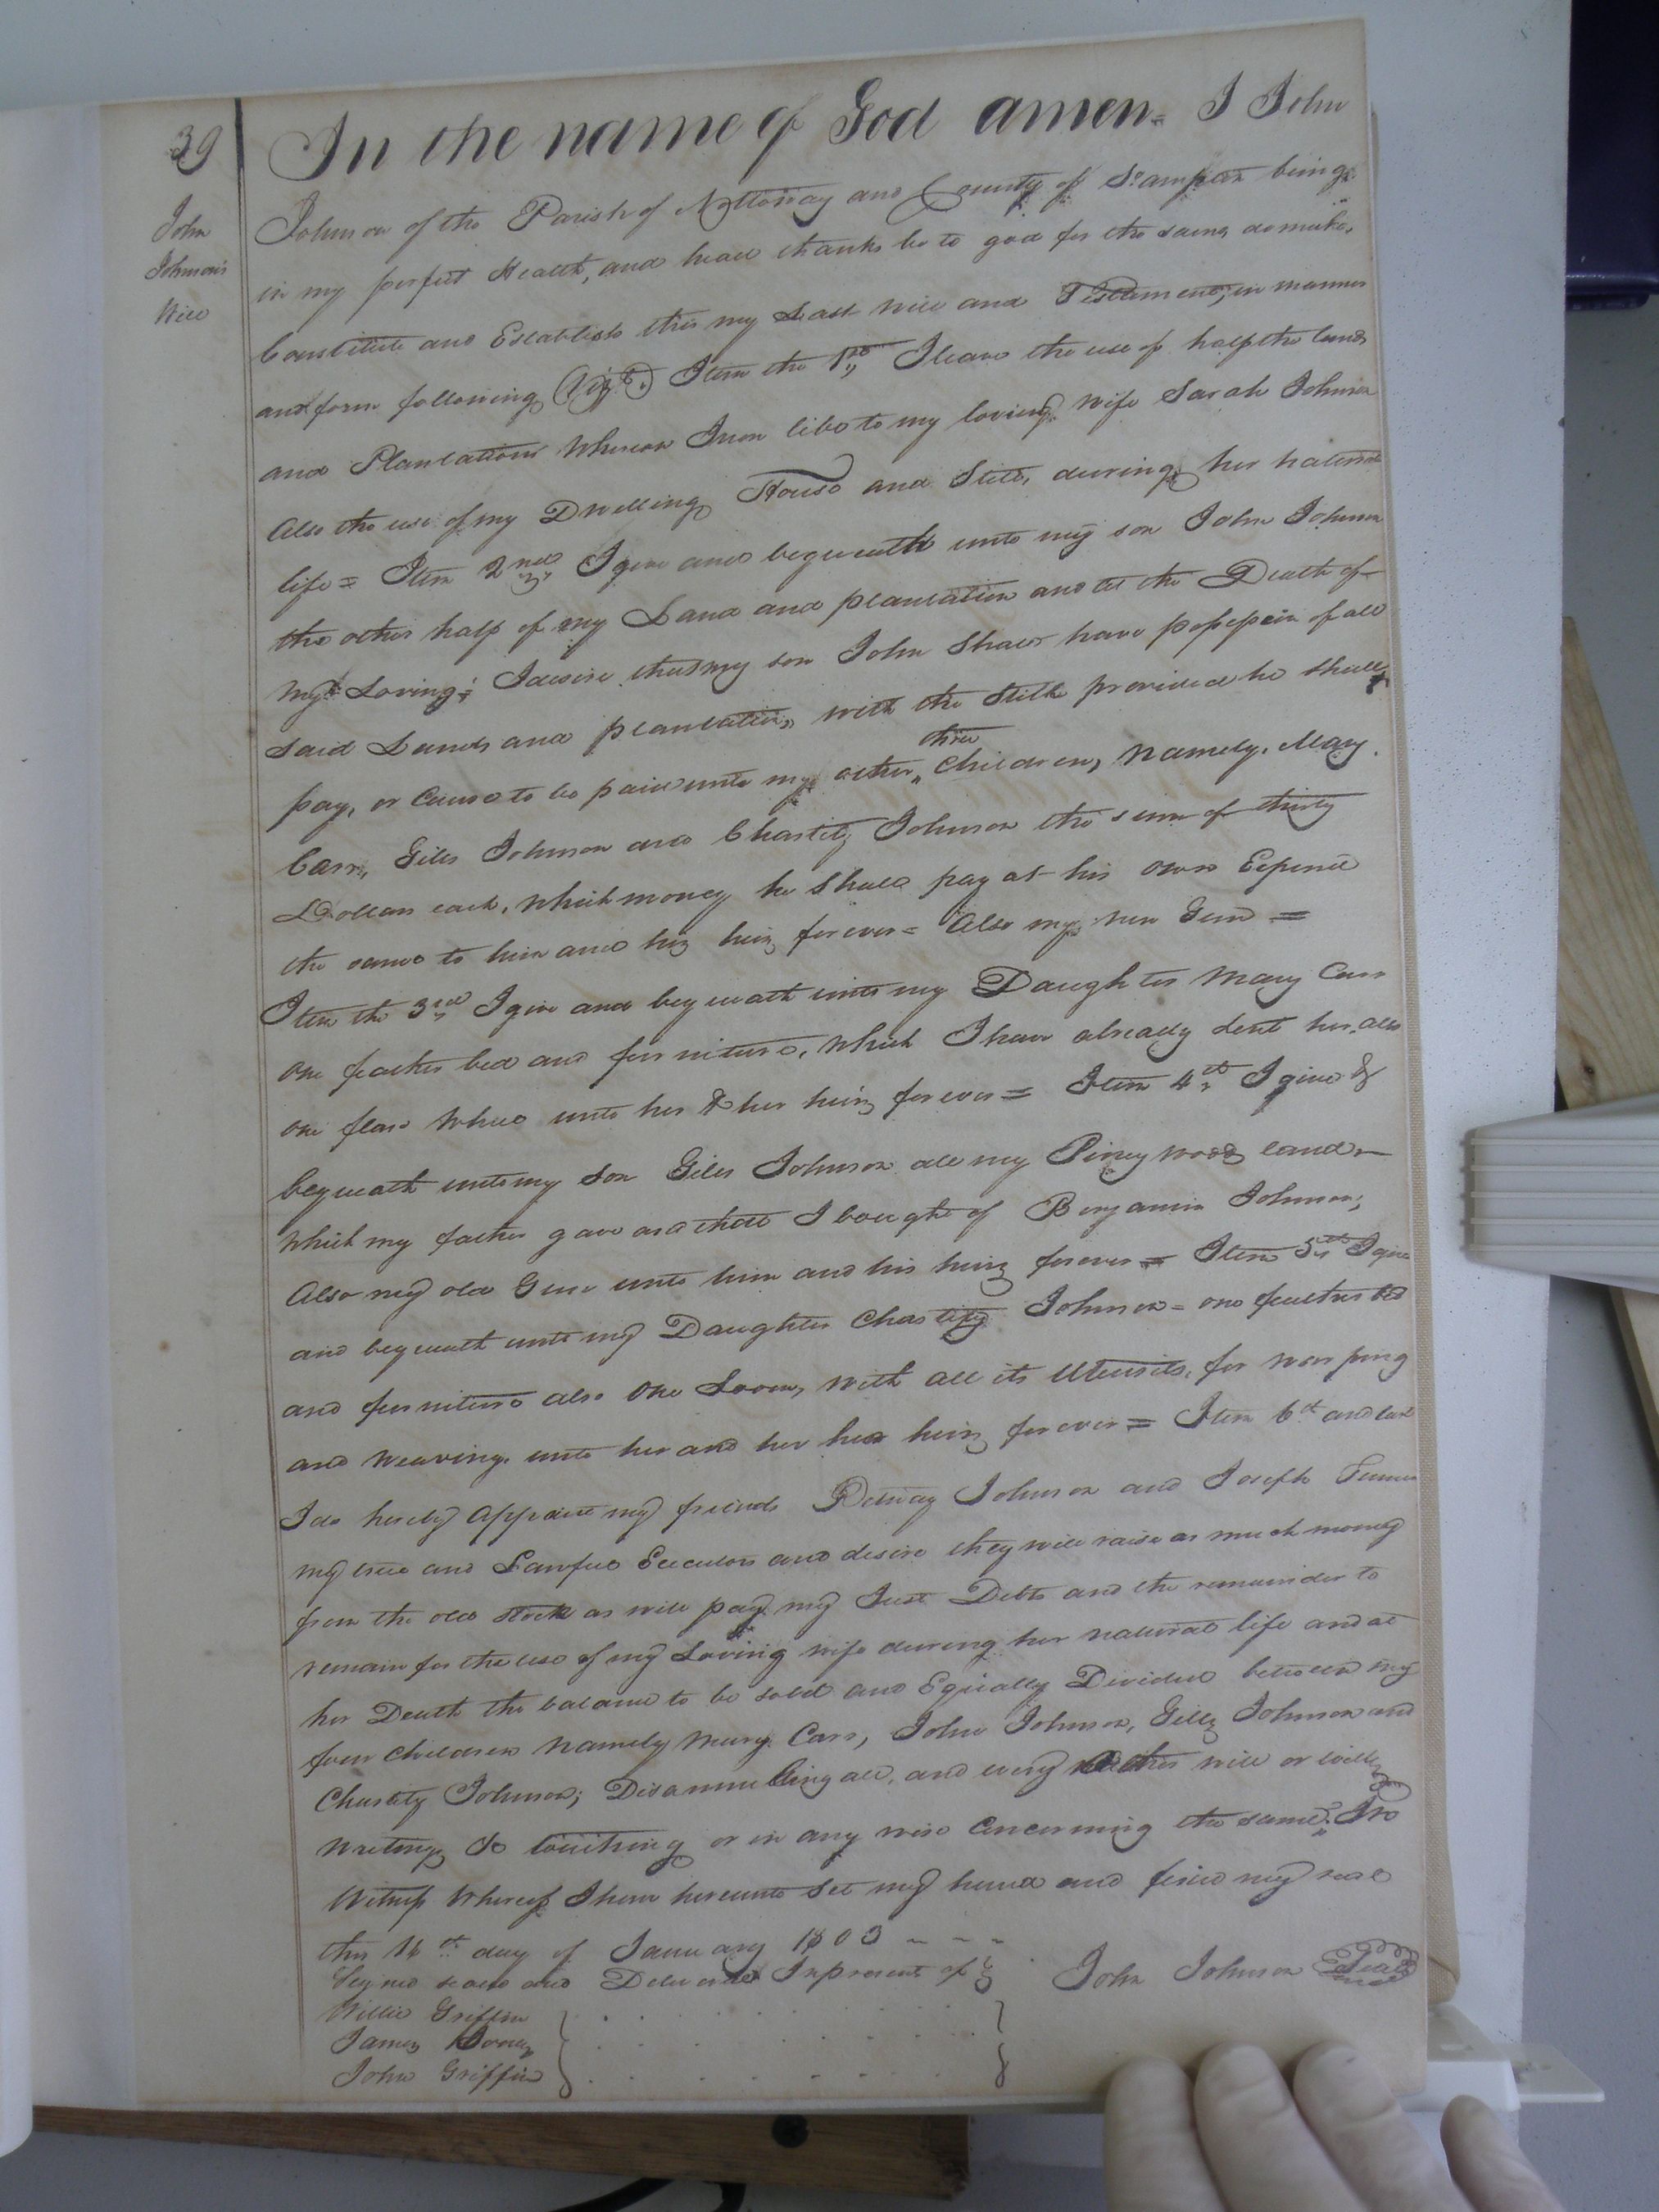 39
John
Johnson's
Will
In the name of God amen = I John
Johnson of the Parish of Nottoway and County of S°ampton being
in my perfect Health, and head thanks be to god for the same, do make,
Constitute and Establish this my Last will and Testement, in manner
and form following (Vizt.) Item the 1st I leave the use of half the land
and Plantation Whereon I now live to my loving wife Sarah Johnson
Also the use of my Dwelling House and Still, during her natural
life = Item 2nd I give and bequeath unto my son John Johnson
the other half of my Land and plantation and at the Death of
my Loving; I desire that my son John Shall have possession of all
said Lands and plantation, with the Still provided he shall
pay, or Cause to be paid unto my other three Children, Namely, Mary
Carr, Giles Johnson and Chastity Johnson the sum of thirty
Dollars each, which money he Shall pay at his own Expence
the same to him and his heirs forever = Also my new Gun =
Item the 3rd I give and bequeath unto my Daughter Mary Carr
one feather bed and furniture, which I have already lent her, also
one flax wheel unto her & her heirs forever = Item 4th I give &
bequeath unto my Son Giles Johnson all my Piney woods land
which my father gave and that I bought of Benjamin Johnson;
Also my old Gun unto him and his heirs forever = Item 5th I give
and bequeath unto my Daughter Chastity Johnson = one feather bed
and furniture also one Loom, with all its Utensils, for warping
and weaving, unto her and her heirs forever = Item 6th and last
I do hereby Appoint my friends Pettway Johnson and Joseph Turner
my true and Lawful Executors and desire they will raise as much money
from the old stock as will pay my Just Debts and the remainder to
remain for the use of my Loving wife during her natural life and at
her Death the balance to be sold and Equally Divided between my
four Children Namely Mary Carr, John Johnson, Gills Johnson and
Chastity Johnson; Disannulling all, and every other will or wills
writings to touching or in any wise Concerning the same; In
Witness Whereof I have hereunto Set my hand and fixed my seal
this 16th day of January 1803 - - -
Signed seald and Deliverd In presents of John Johnson Seal
Willie Griffin
James
John Griffin